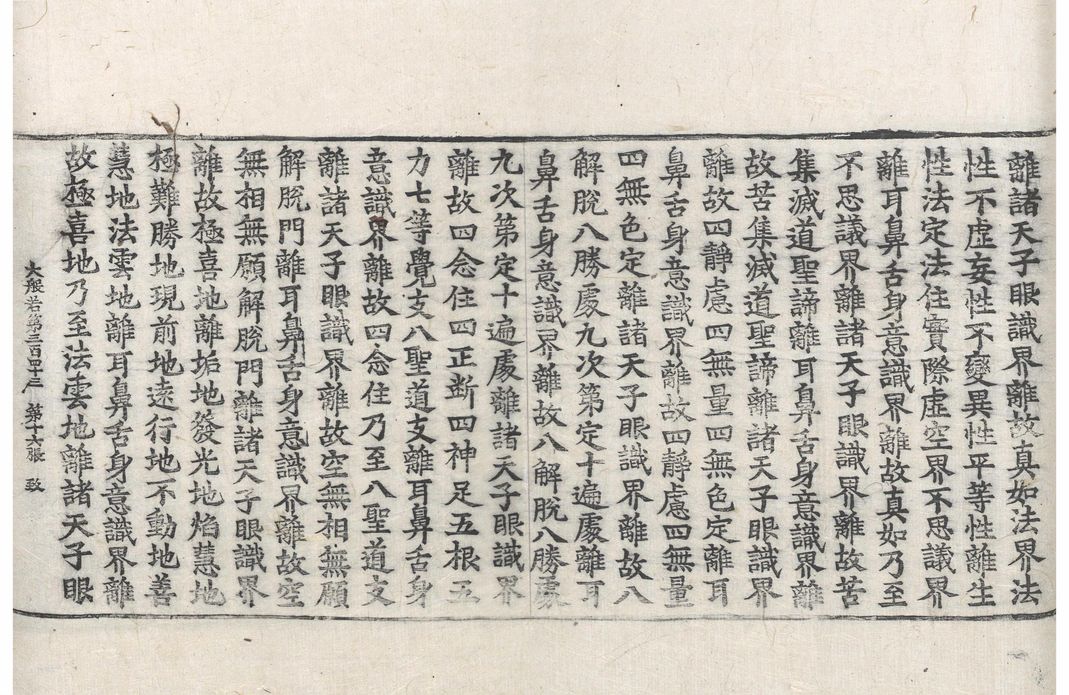 離諸天子眼識界離故真如法界法
性不虛妄性不變異性平等性離生
性法定法住實際虛空界不思議界
離耳鼻舌身意識界離故真如乃至
不思議界離諸天子眼識界離故苦
集滅道聖諦離耳鼻舌身意識界離
故苦集滅道聖諦離諸天子眼識界
離故四靜慮四無量四無色定離耳
鼻舌身意識界離故四靜慮四無量
四無色定離諸天子眼識界離故八
解脫八勝處九次第定十遍處離耳
鼻舌身意識界離故八解脫八勝處
九次第定十遍處離諸天子眼識界
離故四念住四正斷四神足五根五
力七等覺支八聖道支離耳鼻舌身
意識界離故四念住乃至八聖道支
離諸天子眼識界離故空無相無願
解脫門離耳鼻舌身意識界離故空
無相無願解脫門離諸天子眼識界
離故極喜地離垢地發光地焰慧地
極難勝地現前地遠行地不動地善
慧地法雲地離耳鼻舌身意識界離
故極喜地乃至法雲地離諸天子眼
大般若第三百四十三 第十六張 致